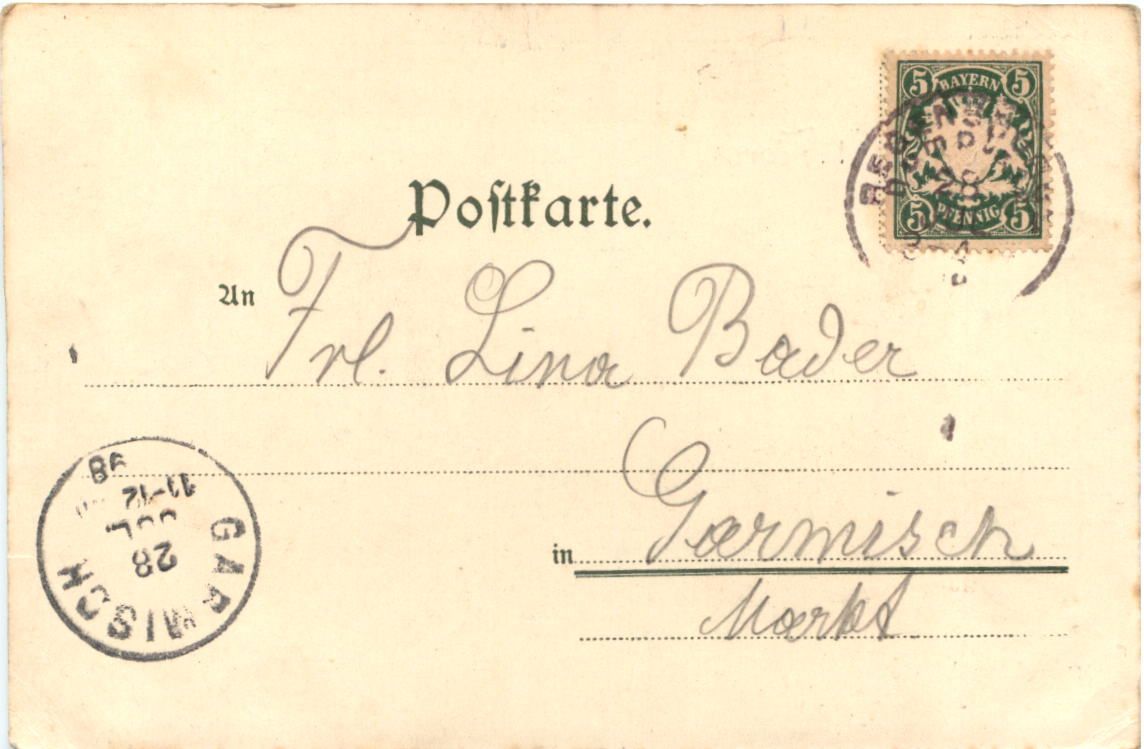 5 BAYERN 5
5 PFENNIG 5
Postkarte.
An Frl. Lina Bader
in Garmisch
Markt
GARMISCH
28
JUL
11-12
98